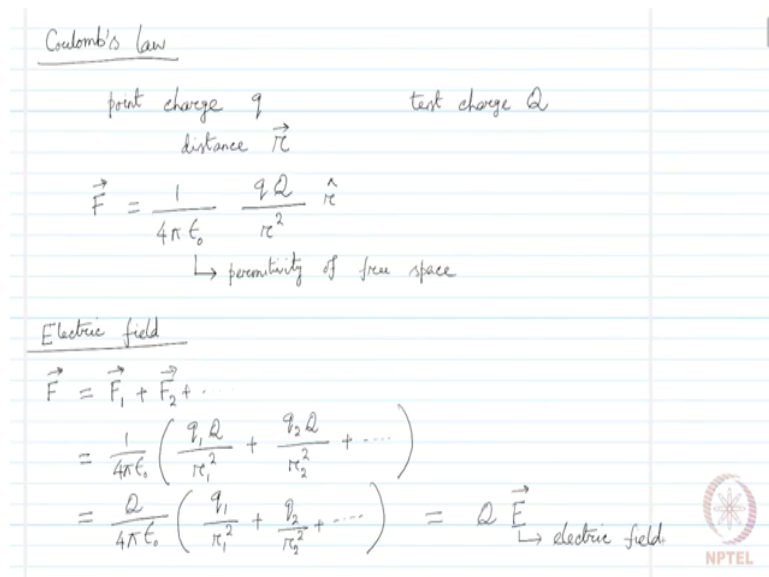 Coulomb's law
point charge q test charge Q
distance r⃗
F⃗ = 1/(4πϵ₀) qQ/r² r̂
↳ permitivity of free space
Electric field
F⃗ = F⃗₁ + F⃗₂ + ····
= 1/(4πϵ₀) ( q₁Q/r₁² + q₂Q/r₂² + ···· )
= Q/(4πϵ₀) ( q₁/r₁² + q₂/r₂² + ···· ) = Q E⃗
↳ electric field.
NPTEL